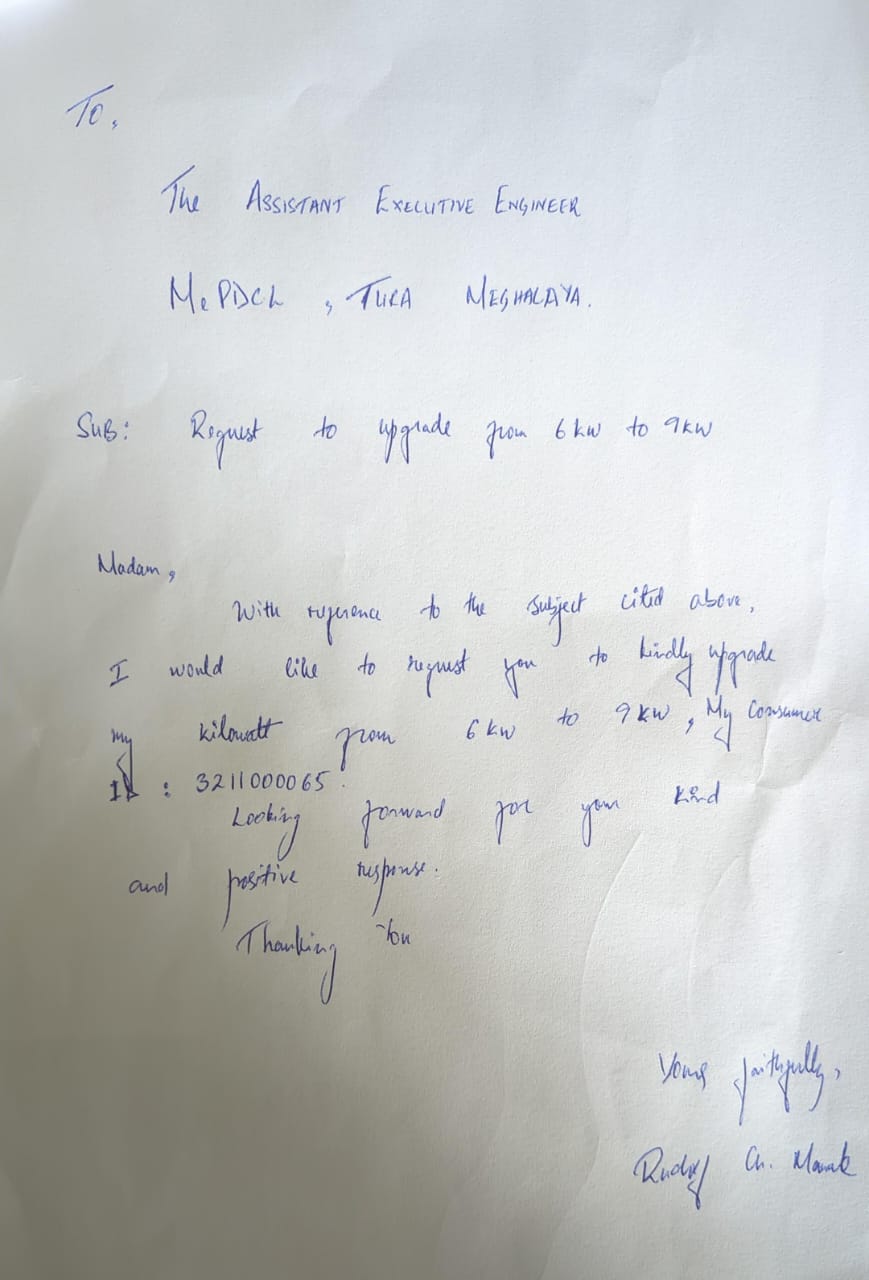 To,
The Assistant Executive Engineer
MePDCL, Tura Meghalaya.
Sub: Request to upgrade from 6 kw to 9 kw
Madam,
With reference to the subject cited above,
I would like to request you to kindly upgrade
my kilowatt from 6 kw to 9 kw, My Consumer
ID : 3211000065.
Looking forward for your kind
and positive response.
Thanking You
Yours faithfully,
Rudolf Ch. Marak